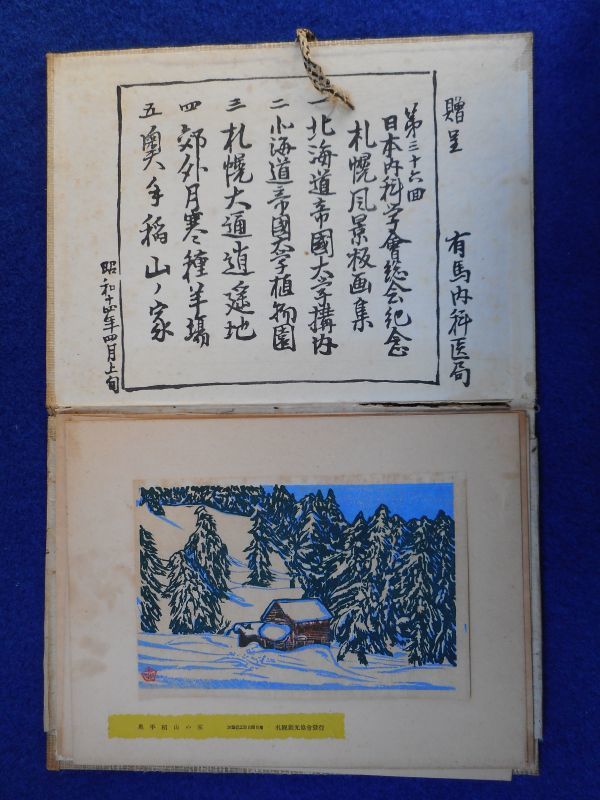 贈呈 有馬内科医局
第三十六回
日本内科学會総会紀念
札幌風景板画集
一 北海道帝國大学構内
二 北海道帝國大学植物園
三 札幌大通逍遥地
四 郊外月寒種羊場
五 奥手稲山ノ家
昭和十四年四月上旬
奥手稲山の家 札幌観光協會發行